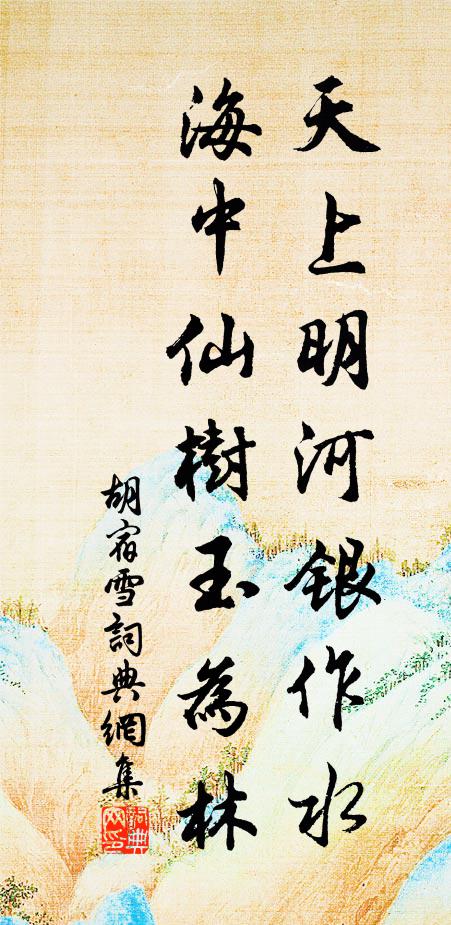 天上明河銀作水
海中仙樹玉為林
胡宿雪詞典網集
詞典網印